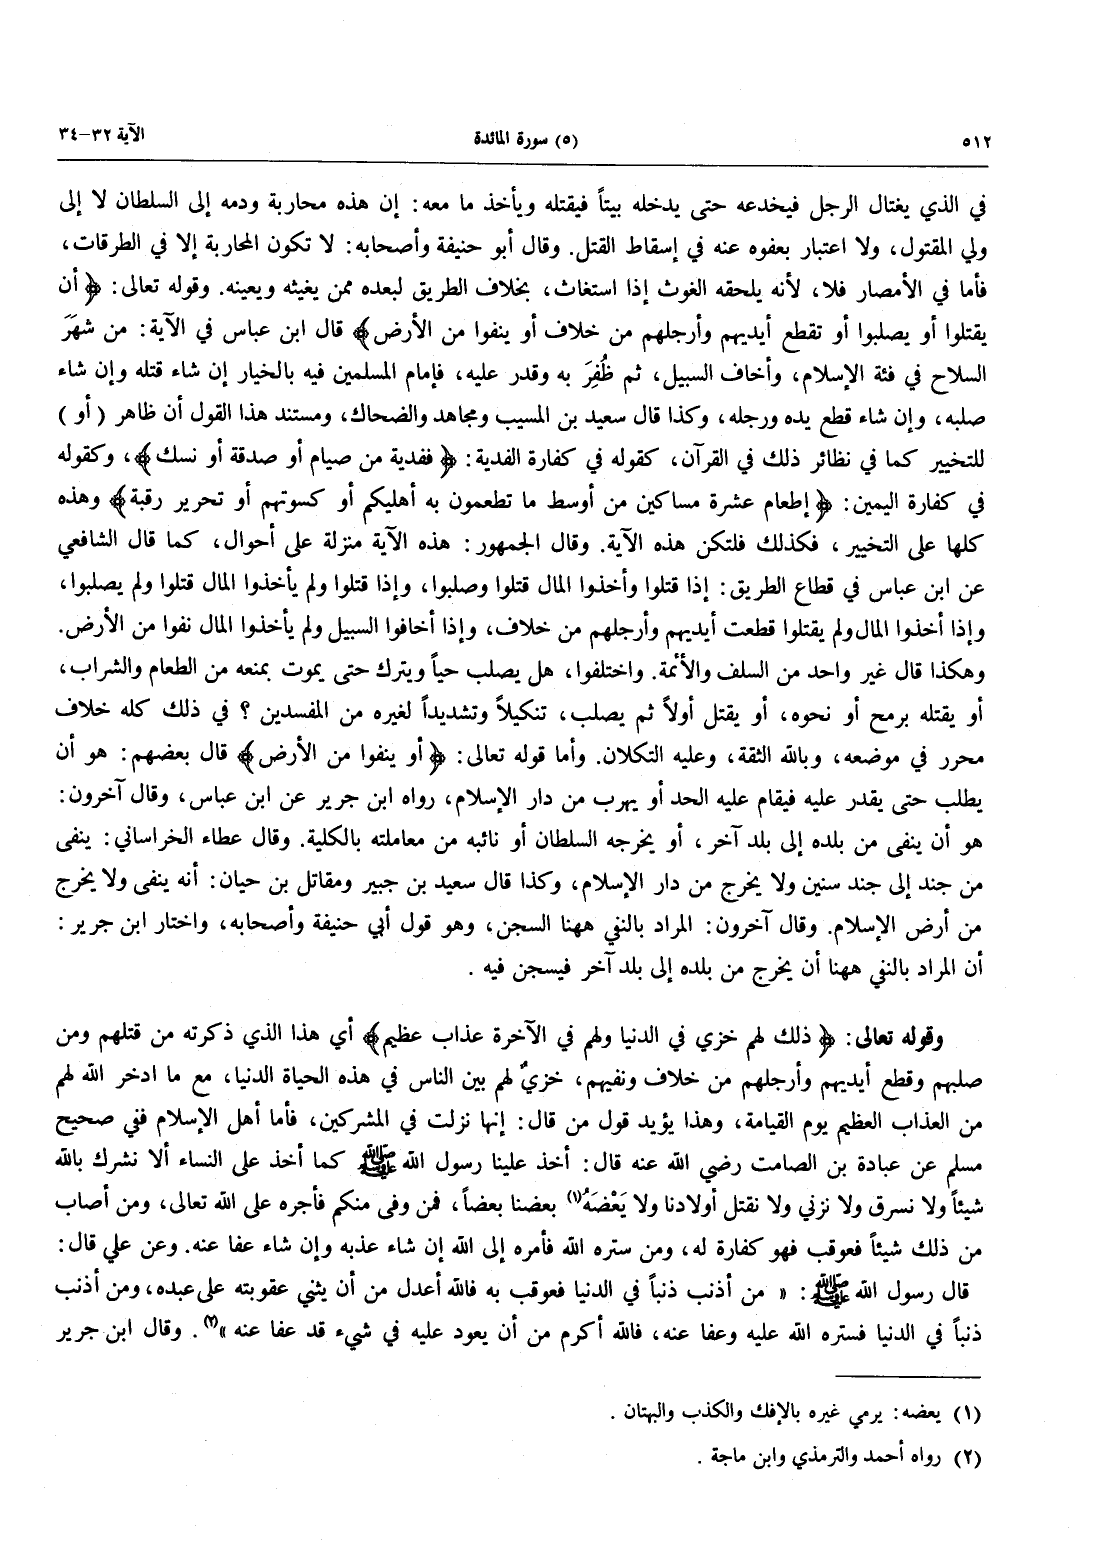 ٥١٢
(٥) سورة المائدة
الآية ٣٢–٣٤
في الذي يغتال الرجل فيخدعه حتى يدخله بيتاً فيقتله ويأخذ ما معه: إن هذه محاربة ودمه إلى السلطان لا إلى
ولي المقتول، ولا اعتبار بعفوه عنه في إسقاط القتل. وقال أبو حنيفة وأصحابه: لا تكون المحاربة إلا في الطرقات،
فأما في الأمصار فلا، لأنه يلحقه الغوث إذا استغاث، بخلاف الطريق لبعده ممن يغيثه ويعينه. وقوله تعالى: ﴿ أن
يقتلوا أو يصلبوا أو تقطع أيديهم وأرجلهم من خلاف أو ينفوا من الأرض﴾ قال ابن عباس في الآية: من شهَرَ
السلاح في فئة الإسلام، وأخاف السبيل، ثم ظُفِرَ به وقدر عليه، فإمام المسلمين فيه بالخيار إن شاء قتله وإن شاء
صلبه، وإن شاء قطع يده ورجله، وكذا قال سعيد بن المسيب ومجاهد والضحاك، ومستند هذا القول أن ظاهر ( أو )
للتخيير كما في نظائر ذلك في القرآن، كقوله في كفارة الفدية: ﴿ ففدية من صيام أو صدقة أو نسك﴾، وكقوله
في كفارة اليمين: ﴿ إطعام عشرة مساكين من أوسط ما تطعمون به أهليكم أو كسوتهم أو تحرير رقبة﴾ وهذه
كلها على التخيير ، فكذلك فلتكن هذه الآية. وقال الجمهور: هذه الآية منزلة على أحوال، كما قال الشافعي
عن ابن عباس في قطاع الطريق: إذا قتلوا وأخذوا المال قتلوا وصلبوا، وإذا قتلوا ولم يأخذوا المال قتلوا ولم يصلبوا،
وإذا أخذوا المال ولم يقتلوا قطعت أيديهم وأرجلهم من خلاف، وإذا أخافوا السبيل ولم يأخذوا المال نفوا من الأرض.
وهكذا قال غير واحد من السلف والأئمة. واختلفوا، هل يصلب حياً ويترك حتى يموت بمنعه من الطعام والشراب،
أو يقتله برمح أو نحوه، أو يقتل أولاً ثم يصلب، تنكيلاً وتشديداً لغيره من المفسدين ؟ في ذلك كله خلاف
محرر في موضعه، وبالله الثقة، وعليه التكلان. وأما قوله تعالى: ﴿ أو ينفوا من الأرض﴾ قال بعضهم: هو أن
يطلب حتى يقدر عليه فيقام عليه الحد أو يهرب من دار الإسلام، رواه ابن جرير عن ابن عباس، وقال آخرون:
هو أن ينفى من بلده إلى بلد آخر، أو يخرجه السلطان أو نائبه من معاملته بالكلية. وقال عطاء الخراساني: ينفى
من جند إلى جند سنين ولا يخرج من دار الإسلام، وكذا قال سعيد بن جبير ومقاتل بن حيان: أنه ينفى ولا يخرج
من أرض الإسلام. وقال آخرون: المراد بالنفي ههنا السجن، وهو قول أبي حنيفة وأصحابه، واختار ابن جرير :
أن المراد بالنفي ههنا أن يخرج من بلده إلى بلد آخر فيسجن فيه .
وقوله تعالى: ﴿ ذلك لهم خزي في الدنيا ولهم في الآخرة عذاب عظيم﴾ أي هذا الذي ذكرته من قتلهم ومن
صلبهم وقطع أيديهم وأرجلهم من خلاف ونفيهم، خزيٌ لهم بين الناس في هذه الحياة الدنيا، مع ما ادخر الله لهم
من العذاب العظيم يوم القيامة، وهذا يؤيد قول من قال: إنها نزلت في المشركين، فأما أهل الإسلام ففي صحيح
مسلم عن عبادة بن الصامت رضي الله عنه قال: أخذ علينا رسول الله ﷺ كما أخذ على النساء ألا نشرك بالله
شيئاً ولا نسرق ولا نزني ولا نقتل أولادنا ولا يَعْضَهُ(١) بعضنا بعضاً، فمن وفى منكم فأجره على الله تعالى، ومن أصاب
من ذلك شيئاً فعوقب فهو كفارة له، ومن ستره الله فأمره إلى الله إن شاء عذبه وإن شاء عفا عنه. وعن علي قال:
قال رسول الله ﷺ : « من أذنب ذنباً في الدنيا فعوقب به فالله أعدل من أن يثني عقوبته على عبده، ومن أذنب
ذنباً في الدنيا فستره الله عليه وعفا عنه، فالله أكرم من أن يعود عليه في شيء قد عفا عنه »(٢). وقال ابن جرير
(١) يعضه: يرمي غيره بالإفك والكذب والبهتان .
(٢) رواه أحمد والترمذي وابن ماجة .